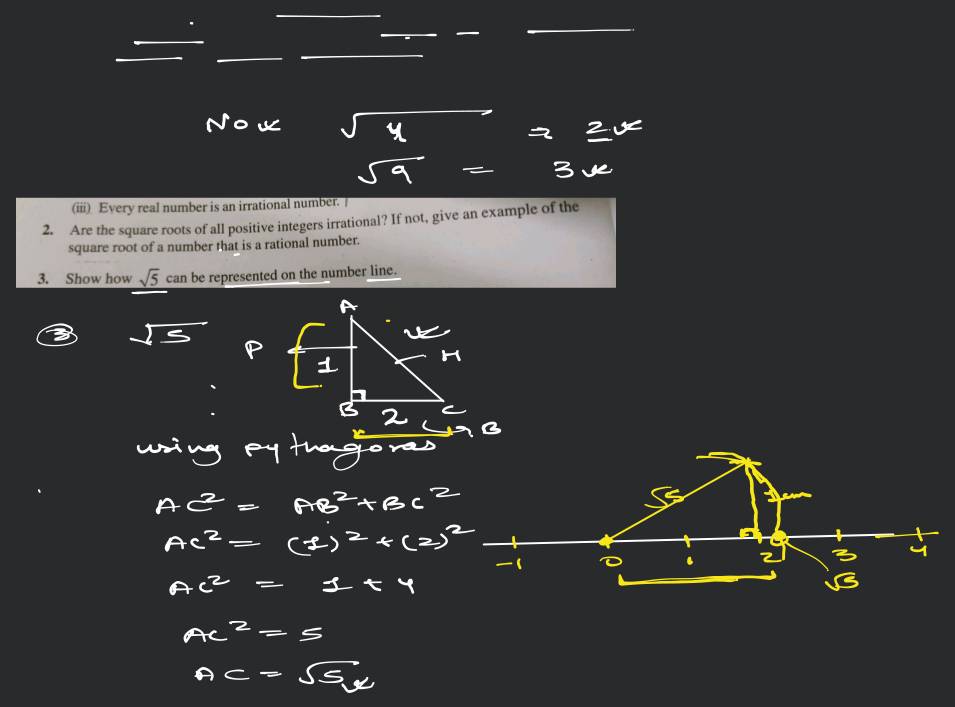 Now √4 ⇒ 2
√9 = 3
(iii) Every real number is an irrational number.
2. Are the square roots of all positive integers irrational? If not, give an example of the
square root of a number that is a rational number.
3. Show how √5 can be represented on the number line.
③ √5
A
P 1 H
B 2 C
B
using pythagoras
AC² = AB² + BC²
AC² = (1)² + (2)²
AC² = 1 + 4
AC² = 5
AC = √5
√5 1cm
-1 0 1 2 3 4
√5